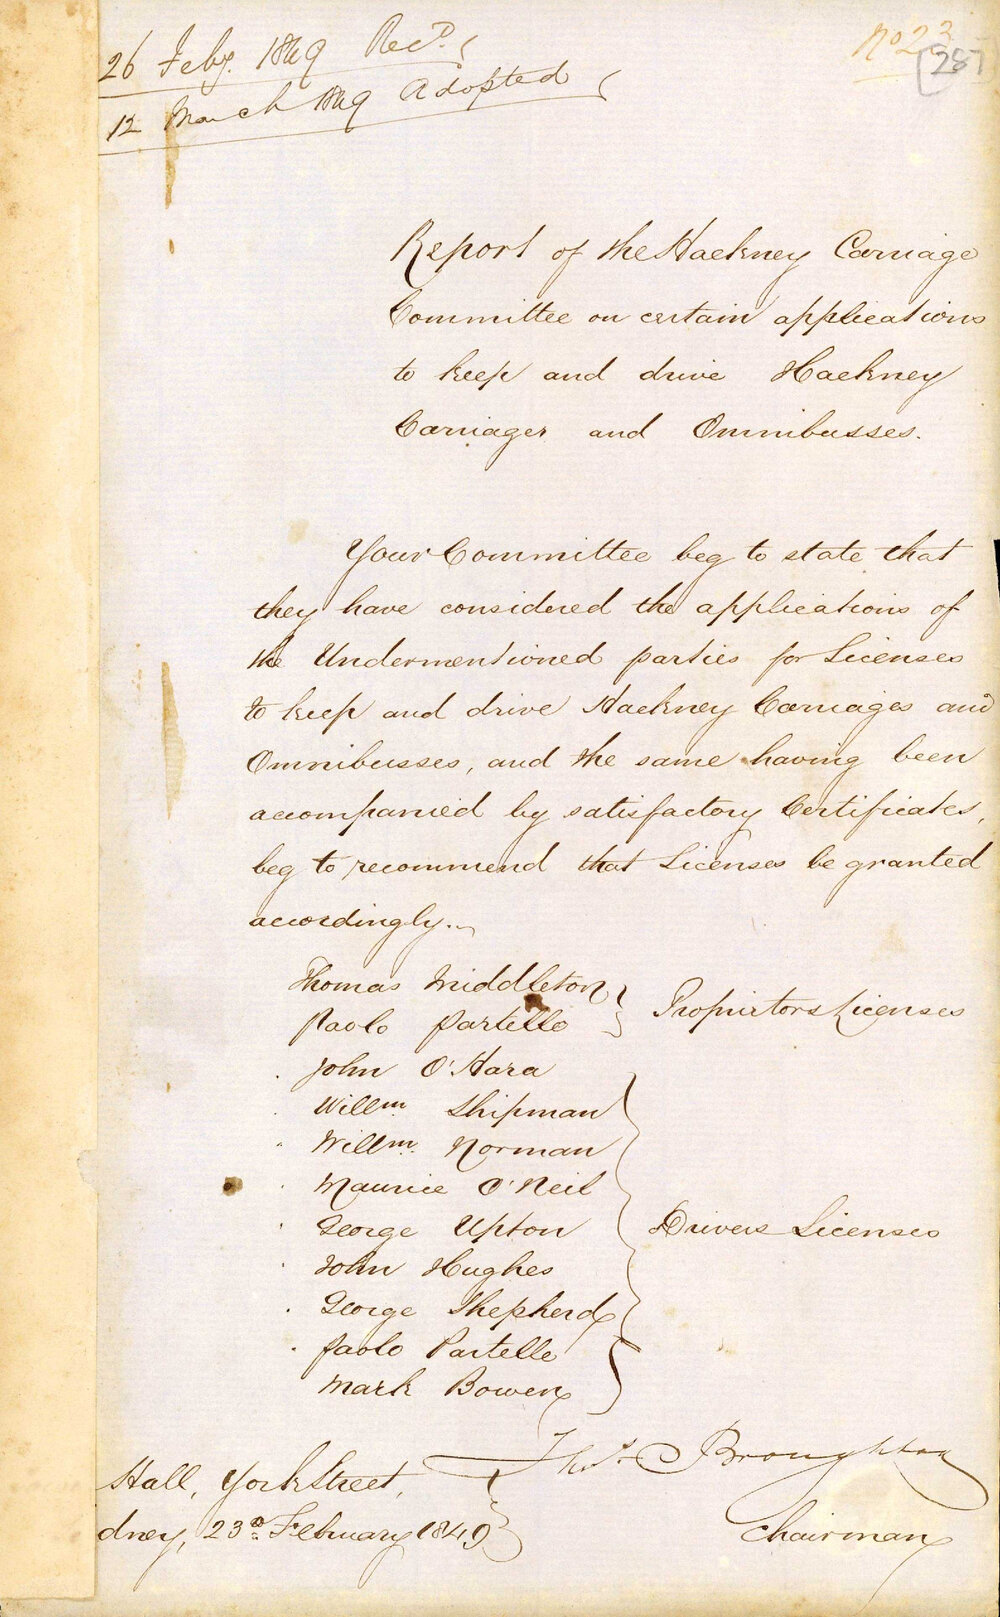 26 Feby. 1849 Recd.
12 March 1849 Adopted
No 23
[287]
Report of the Hackney Carriage
Committee on certain applications
to keep and drive Hackney
Carriages and Omnibusses.
Your Committee beg to state that
they have considered the applications of
the Undermentioned parties for Licenses
to keep and drive Hackney Carriages and
Omnibusses, and the same having been
accompanied by satisfactory Certificates,
beg to recommend that Licenses be granted
accordingly.
Thomas Middleton
Paolo Partelle
Proprietors Licenses
John O'Hara
Willm Shipman
Willm. Norman
Maurice O'Neil
George Upton
John Hughes
George Shepherd
Paolo Partelle
Mark Bowen
Drivers Licenses
Hall, York Street,
dney, 23d February 1849
Thos. Broughton
Chairman